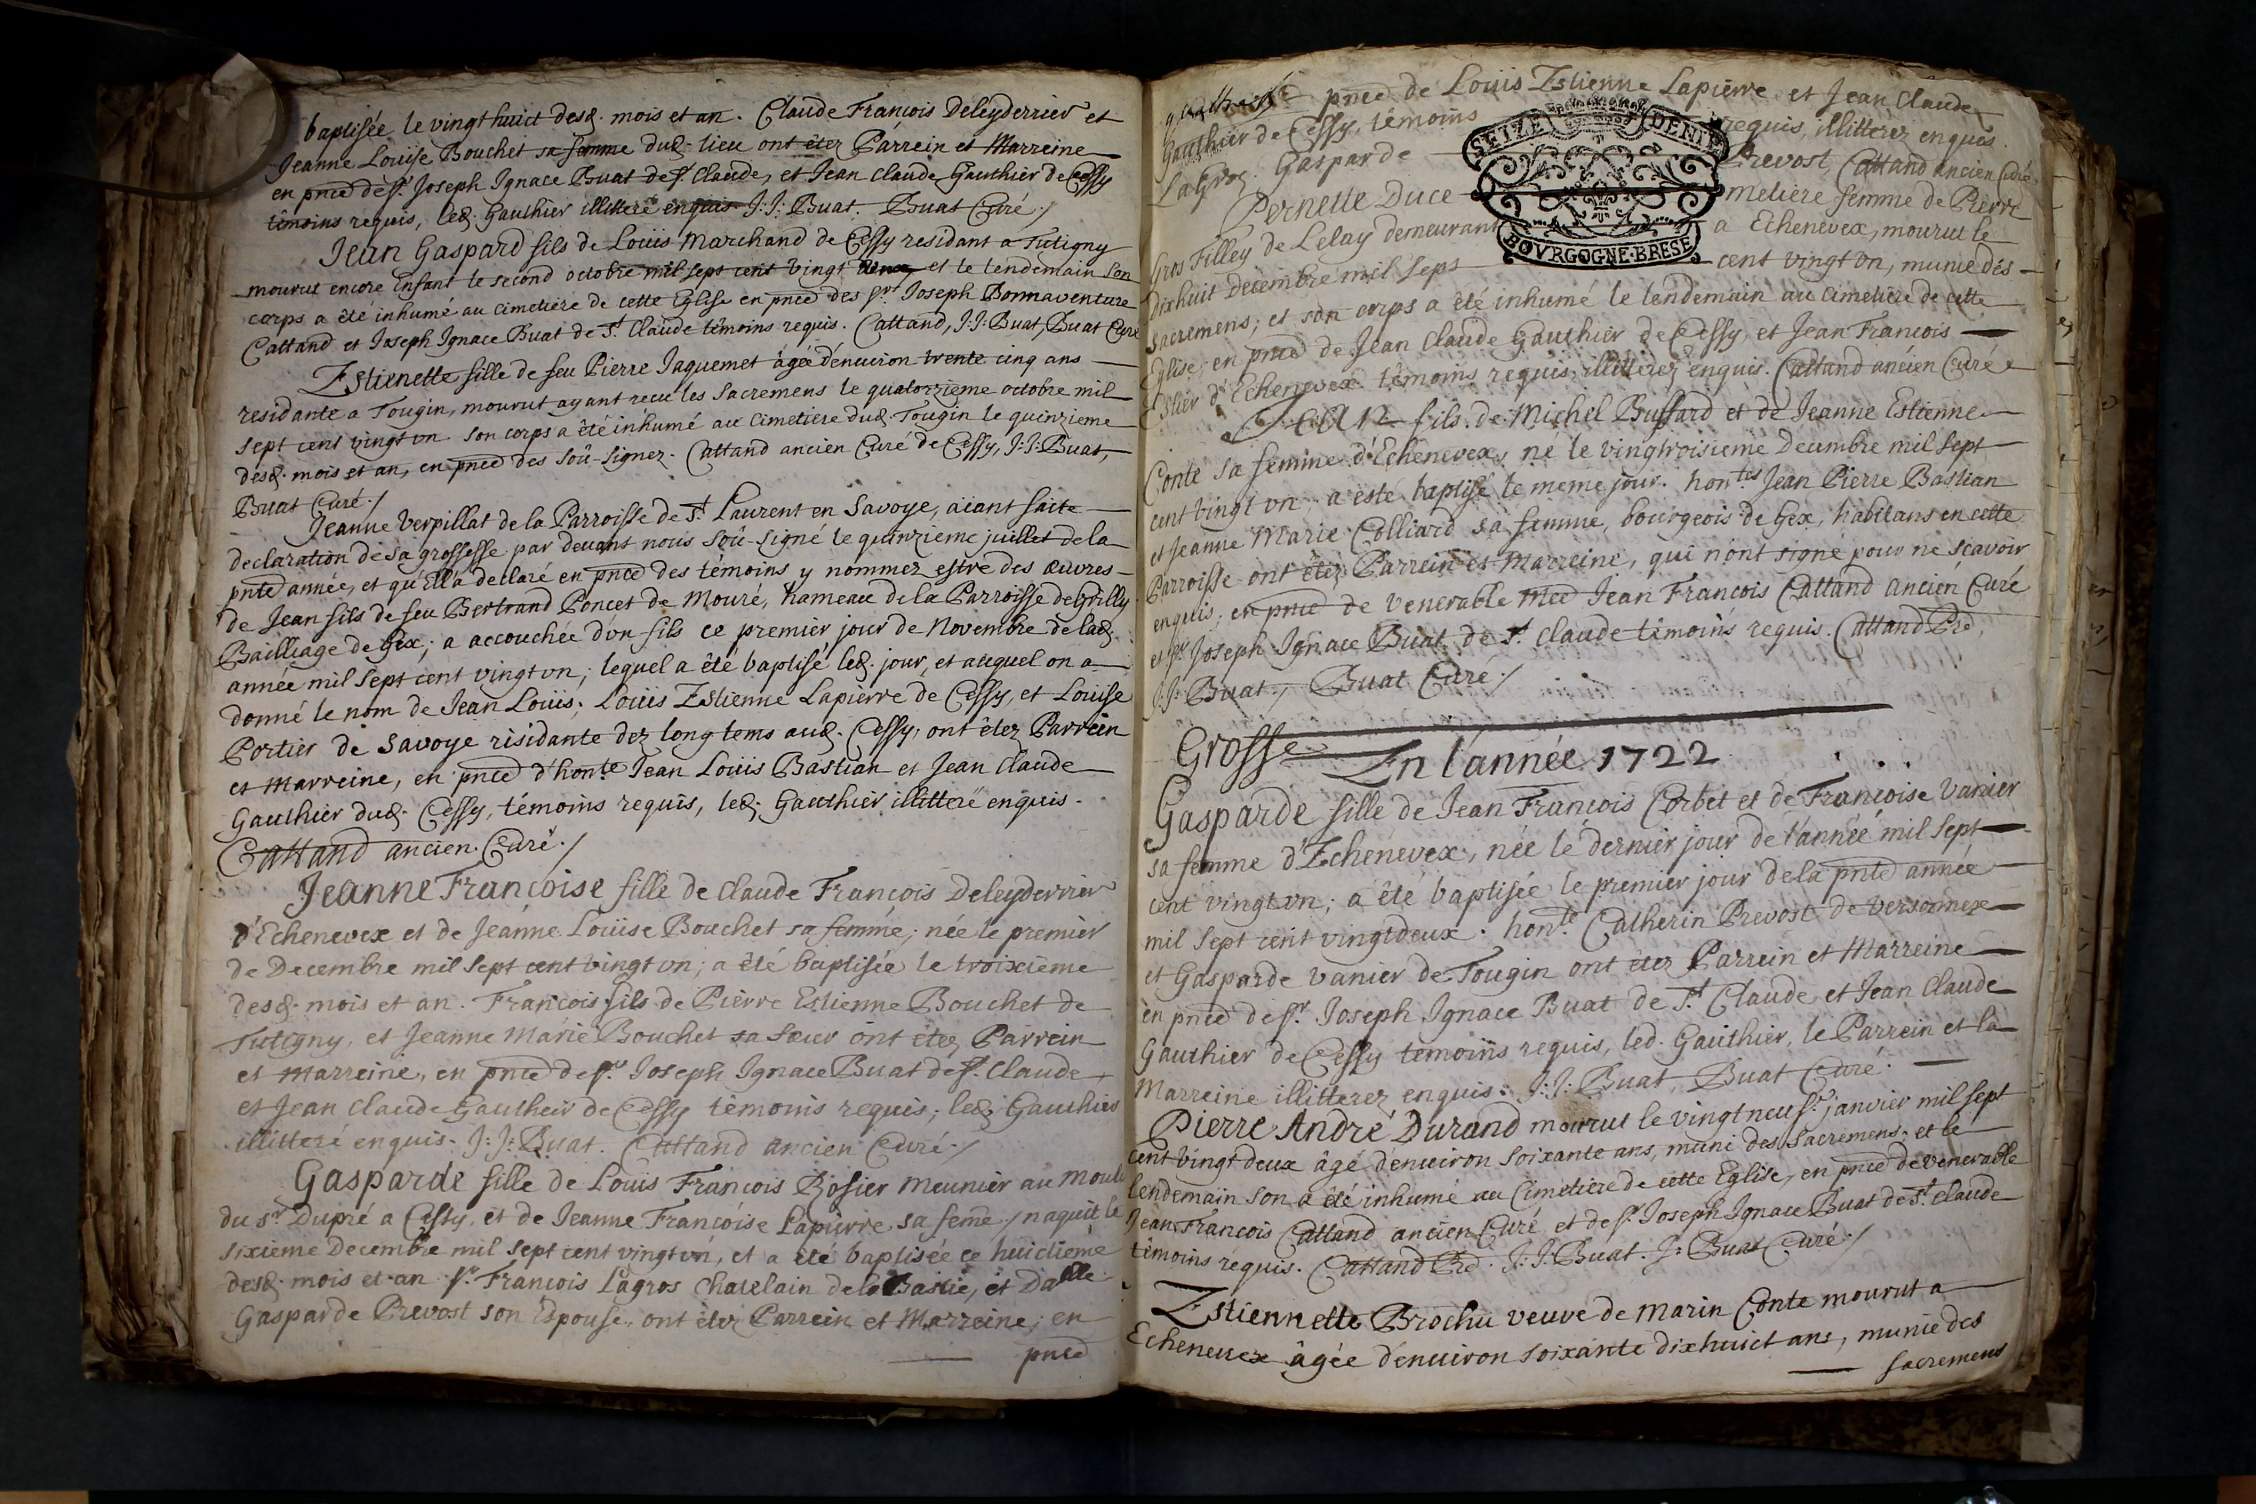 baptisée le vingt huict desd. mois et an. Claude François Deleyderrier et
Jeanne Louïse Bouchet sa femme dud. lieu ont êtez Parrein et Marreine
en pnce de sr. Joseph Ignace Buat de st. Claude, et Jean Claude Gauthier de Cessy
témoins requis, led. Gauthier illitteré enquis J:J: Buat. Buat Curé./
Jean Gaspard fils de Louïs Marchand de Cessy residant a Tutigny
mourut encore Enfant le second octobre mil sept cent vingt et le lendemain son
corps a été inhumé au cimetiere de cette Eglise en pnce des srs. Joseph Bonnaventure
Cattand et Joseph Ignace Buat de St Claude témoins requis. Cattand, J:J: Buat, Buat Curé
Estienette fille de feu Pierre Jaquemet âgée d'enuiron trente cinq ans
residante a Tougin, mourut ayant receu les sacremens le quatorzieme octobre mil
sept cens vingt vn son corps a été inhumé au cimetiere dud. Tougin le quinzieme
desd. mois et an, en pnce des soû-signez. Cattand ancien Curé de Cessy, J:J: Buat,
Buat Curé./
Jeanne Verpillat de la Parroisse de St. Laurent en Savoye, aïant faite
declaration de sa grossesse par deuant nous soû-signé le quinzieme juillet de la
pnte année, et qu'Ell'a declaré en pnce des témoins y nommez estre des œuvres
de Jean fils de feu Bertrand Poncet de Mouré, hameau de la Parroisse de Grilly
Bailliage de Gex; a accouchée d'vn fils ce premier jour de Novembre de lad.
année mil sept cent vingt vn; lequel a été baptisé led. jour, et auquel on a
donné le nom de Jean Louïs; Louïs Estienne Lapierre de Cessy, et Louïse
Portier de Savoye risidante dez long tems aud. Cessy, ont êtez Parrein
et Marreine, en pnce d'honte Jean Louïs Bastian et Jean Claude
Gauthier dud. Cessy, témoins requis, led. Gauthier illitteré enquis.
Cattand ancien Curé./
Jeanne Françoise fille de Claude François Deleyderrier
d'Echenevex et de Jeanne Louïse Bouchet sa femme; née le premier
de Decembre mil sept cent vingt vn; a été baptisée le troixieme
desd. mois et an. François fils de Pierre Estienne Bouchet de
Tutigny, et Jeanne Marie Bouchet sa sœur ont êtez Parrein
et Marreine, en pnce de sr. Joseph Ignace Buat de st. Claude,
et Jean Claude Gautheir de Cessy témoins requis; led. Gauthier
illitteré enquis. J:J: Buat. Cattand ancien Curé./
Gasparde fille de Louïs François Rosier meunier au Mouli
du sr Dupré a Cessy, et de Jeanne Françoise Lapierre sa feme, naquit le
sixieme Decembre mil sept cent vingt vn, et a été baptisée ce huictieme
desd. mois et an sr. François Lagros Chatelain de la Bastie, et Dalle
Gasparde Prevost son Epouse, ont êtez Parrein et Marreine; en
pnce
pnce de Louïs Estienne Lapierre et Jean Claude
Gauthier de Cessy, témoins requis, illitterez enquis.
LaGros. Gasparde Prevost, Cattand ancien Curé
SEIZE DENIE
BOVRGOGNE·BRESE
Pernette Duce meliere femme de Pierre
Gros Filley de Lelay demeurant a Echenevex, mourut le
dixhuit Decembre mil seps cent vingt vn, munie des
sacremens; et son corps a été inhumé le lendemain au cimetiere de cette
Eglise, en pnce de Jean Claude Gauthier de Cessy et Jean François
Estier d'Echenevex témoins requis, illitterez enquis. Cattand ancien Curé
Jean fils de Michel Buffard et de Jeanne Estienne
Conte sa femme d'Echenevex, né le vingtroisieme Decembre mil sept
cent vingt vn a esté baptisé le meme jour. hontes Jean Pierre Bastian
et Jeanne Marie Colliard sa femme, bourgeois de Gex, habitans en cette
Parroisse ont êtez Parrein et Marreine, qui n'ont signé pour ne scavoir
enquis; en pnce de venerable Mre Jean François Cattand ancien Curé
et sr Joseph Ignace Buat de st. Claude témoins requis. Cattand Pre,
J:J: Buat, Buat Curé./
Grosse
En l'année 1722
Gasparde fille de Jean François Corbet et de Françoise Vanier
sa femme d'Echenevex, née le dernier jour de l'année mil sept
cent vingt vn; a été baptisée le premier jour de la pnte année
mil sept cent vingt deux. honte. Catherin Prevost de Versonnex
et Gasparde Vanier de Tougin ont êtez Parrein et Marreine
en pnce de sr. Joseph Ignace Buat de St Claude et Jean Claude
Gauthier de Cessy temoins requis, led. Gauthier, le Parrein et la
Marreine illitterez enquis. J:J: Buat, Buat Curé.
Pierre André Durand mourut le vingt neuf. janvier mil sept
cent vingt deux âgé d'enuiron soixante ans, muni des Sacremens, et le
lendemain son a été inhumé au Cimetiere de cette Eglise, en pnce de venerable
Jean François Cattand ancien Curé et de sr. Joseph Ignace Buat de St. Claude
témoins requis. Cattand Pre. J:J: Buat. J: Buat Curé./
Estiennette Brochu veuve de Marin Conte mourut a
Echeneuex âgée d'enuiron soixante dixhuict ans, munie des
sacremens